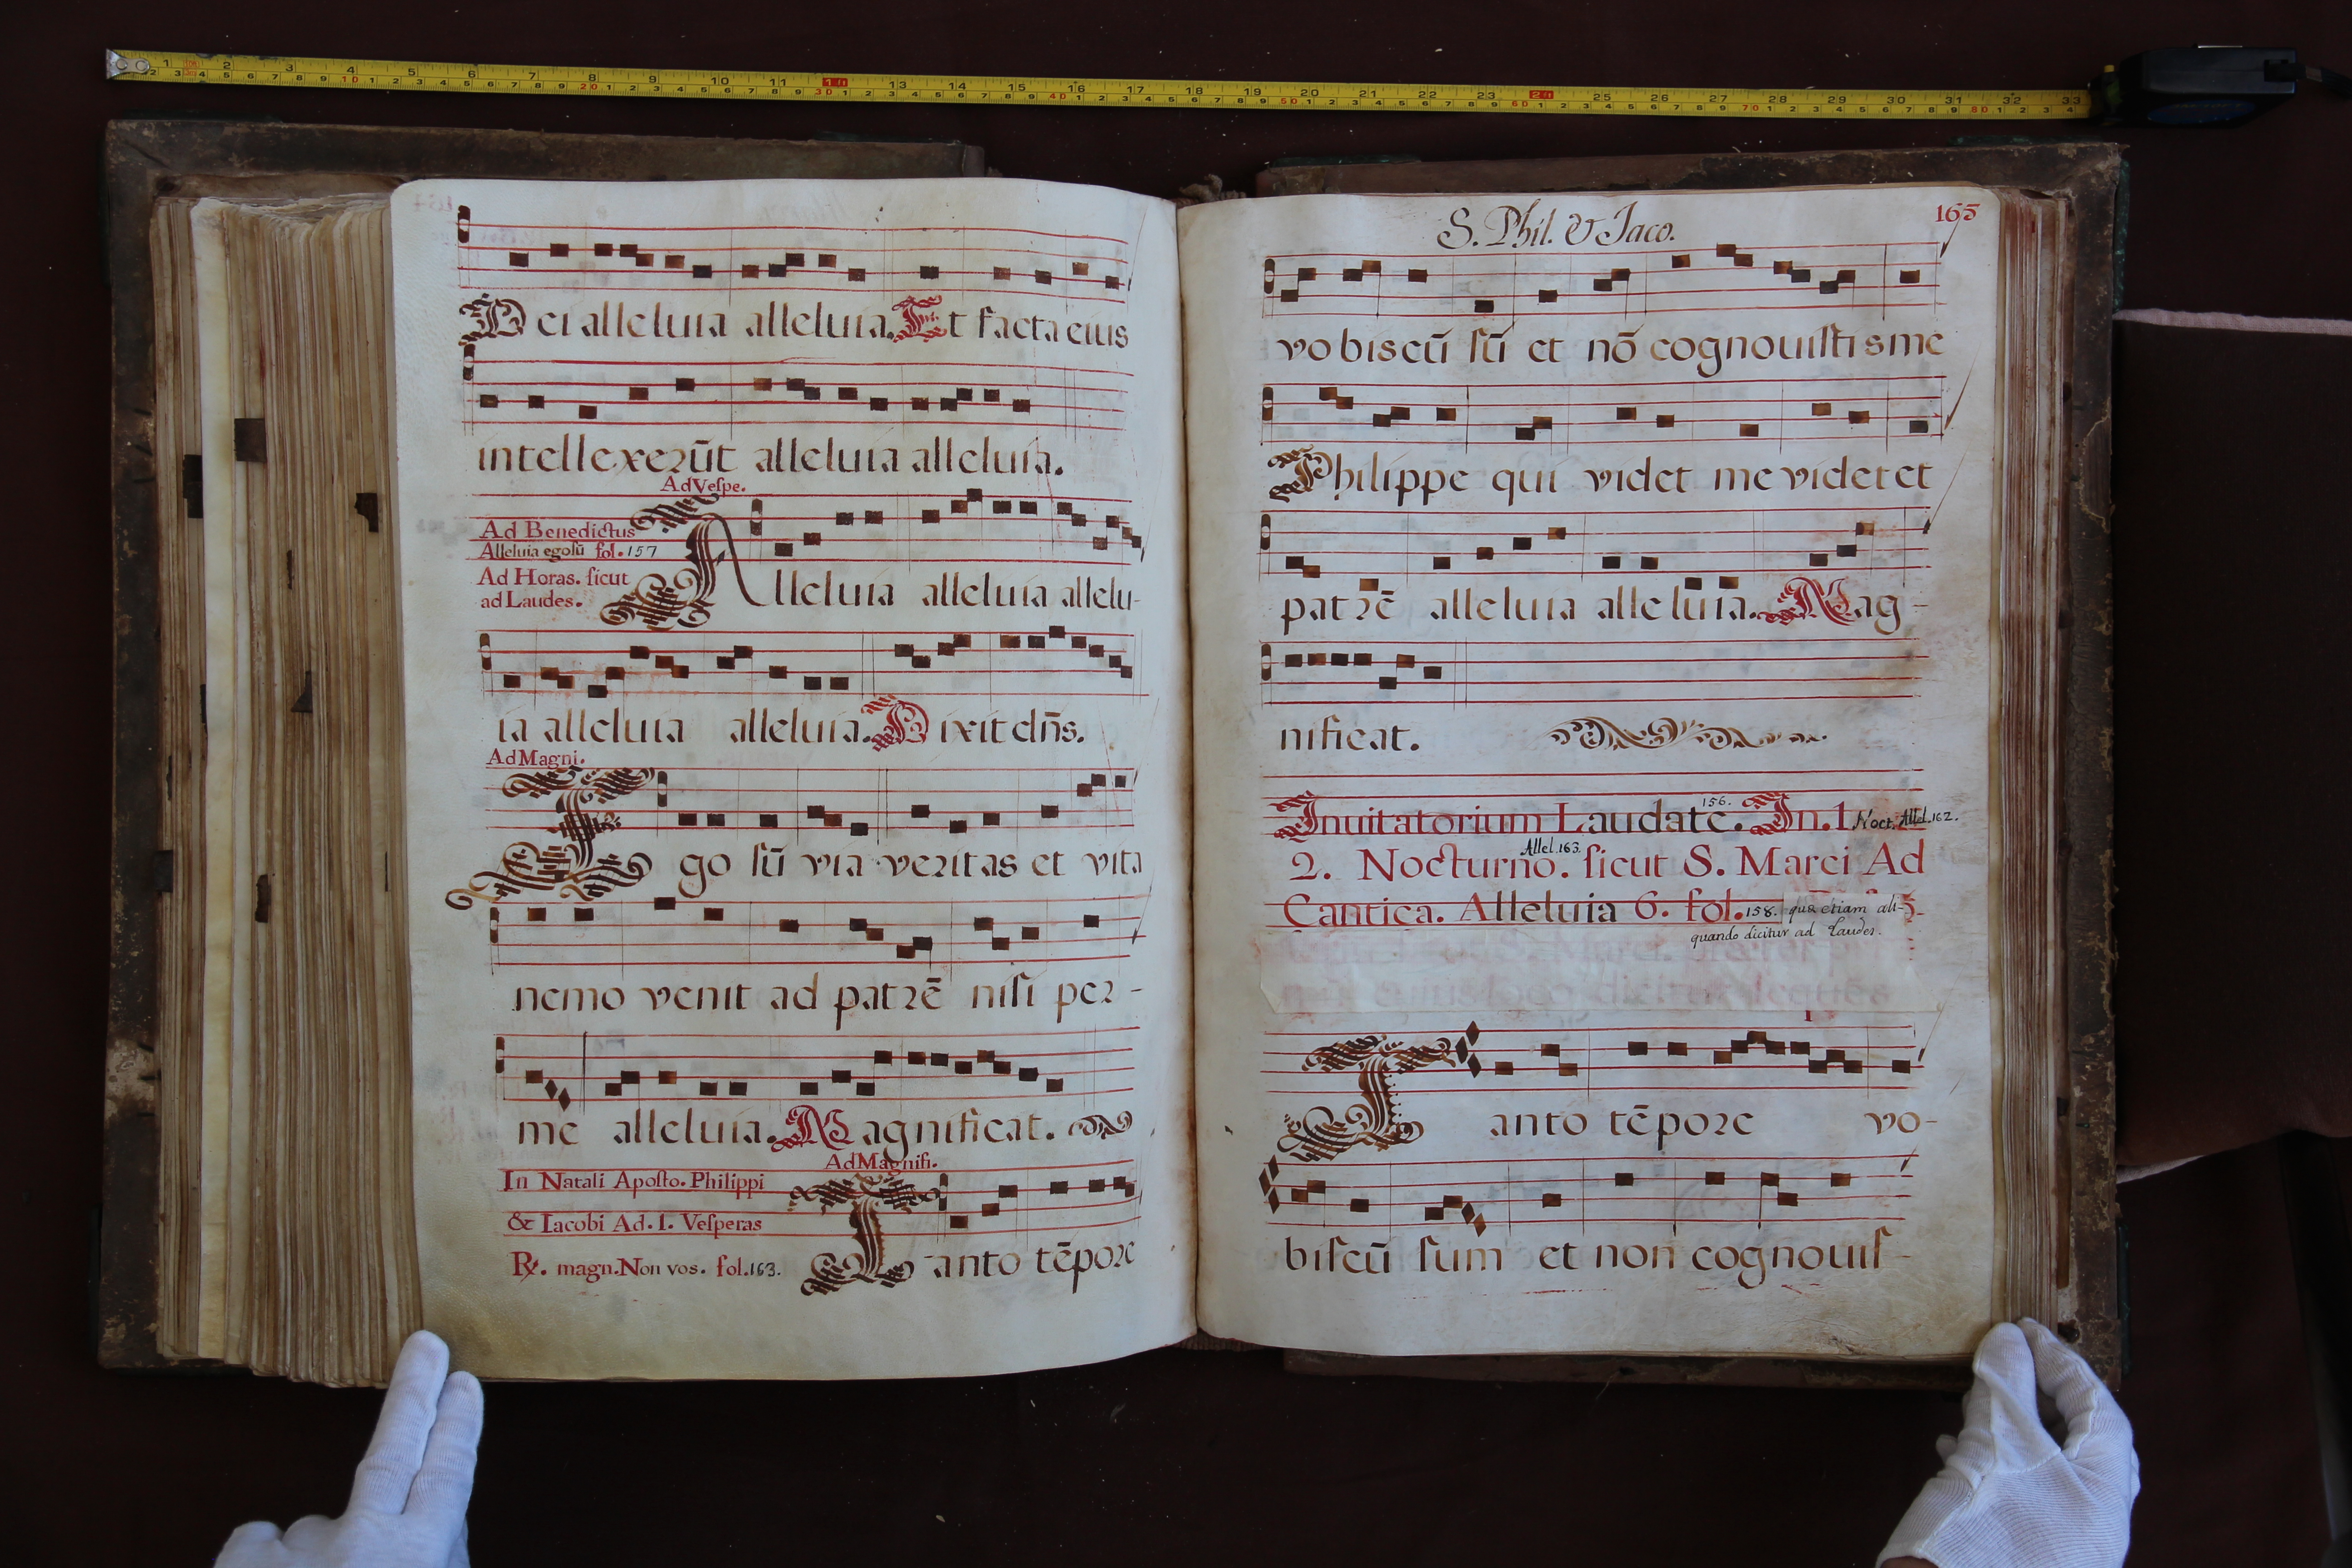 Dei alleluia alleluia. Et facta eius
intellexerūt alleluia alleluia.
Ad Vespe.
Ad Benedictus
Alleluia ego sū fol. 157
Ad Horas. sicut
ad Laudes.
Alleluia alleluia allelu-
ia alleluia alleluia. Dixit dn̄s.
Ad Magni.
Ego sū via veritas et vita
nemo venit ad patrē nisi per-
me alleluia. Magnificat.
Ad Magnifi.
In Natali Aposto. Philippi
& Iacobi Ad. I. Vesperas
R. magn. Non vos. fol. 163.
Tanto tēpore
S. Phil. & Jaco.
165
vobiscū sū et nō cognouistis me
Philippe qui videt me videt et
patrē alleluia alleluia. Mag-
nificat.
Inuitatorium Laudate. 156. In. 1. Noct. Allel. 162.
2. Nocturno. Allel. 163. sicut S. Marci Ad
Cantica. Alleluia 6. fol. 158. quæ etiam ali-
quando dicitur ad Laudes.
Tanto tēpore vo-
biscū sum et non cognouis-